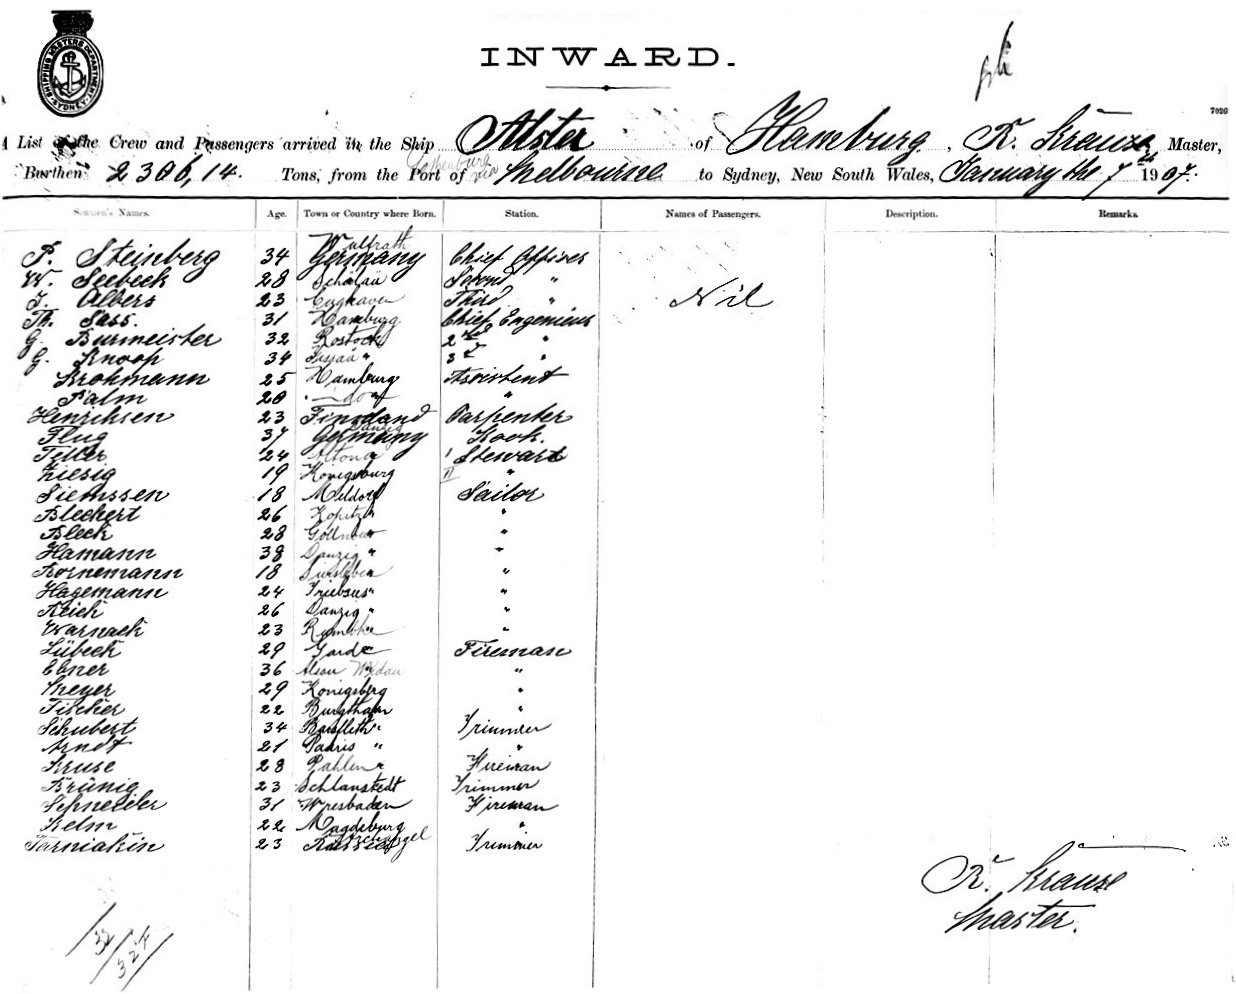 SHIPPING MASTERS DEPARTMENT SYDNEY
INWARD.
7026
A List of the Crew and Passengers arrived in the Ship Alster of Hamburg, R. Krauze Master,
Burthen 2306,14. Tons, from the Port of Melbourne via to Sydney, New South Wales, January the 7 1907.
Seamen's Names. Age. Town or Country where Born. Station. Names of Passengers. Description. Remarks.
P. Steinberg 34 Wulfrath Germany Chief Officer
W. Seebeck 28 Second "
J. Albers 23 Cuxhaven Third " Nil
Th. Sass. 31 Hamburg Chief Engenieur
G. Burmeister 32 Rostock 2nd "
G. Knoop 34 " 3d "
Krohmann 25 Hamburg Assistent
Palm 20 do "
Henrichsen 23 Finnland Carpenter
Flug 37 Danzig Germany Kook.
Teller 24 Altona I Stewart
Ziesig 19 Königsburg II "
Siemssen 18 Meldorf Sailor
Blechert 26 "
Bleck 28 Gollnow "
Hamann 38 Danzig " "
Bornemann 18 "
Hagemann 24 Triebsus " "
Reich 26 Danzig " "
Warnack 23 "
Lübeck 29 Garde Fireman
Ebner 36 "
Meyer 29 Königsberg "
Fischer 22 Burgthann "
Schubert 34 Barsfleth " Trimmer
Arndt 21 Paaris " "
Kruse 28 Pahlen " Fireman
Brünig 23 Schlanstedt Trimmer
Schneider 31 Wiesbaden Fireman
Kelm 22 Magdeburg "
Tarniakin 23 Russia Trimmer
R. Krauze
Master.
32
324